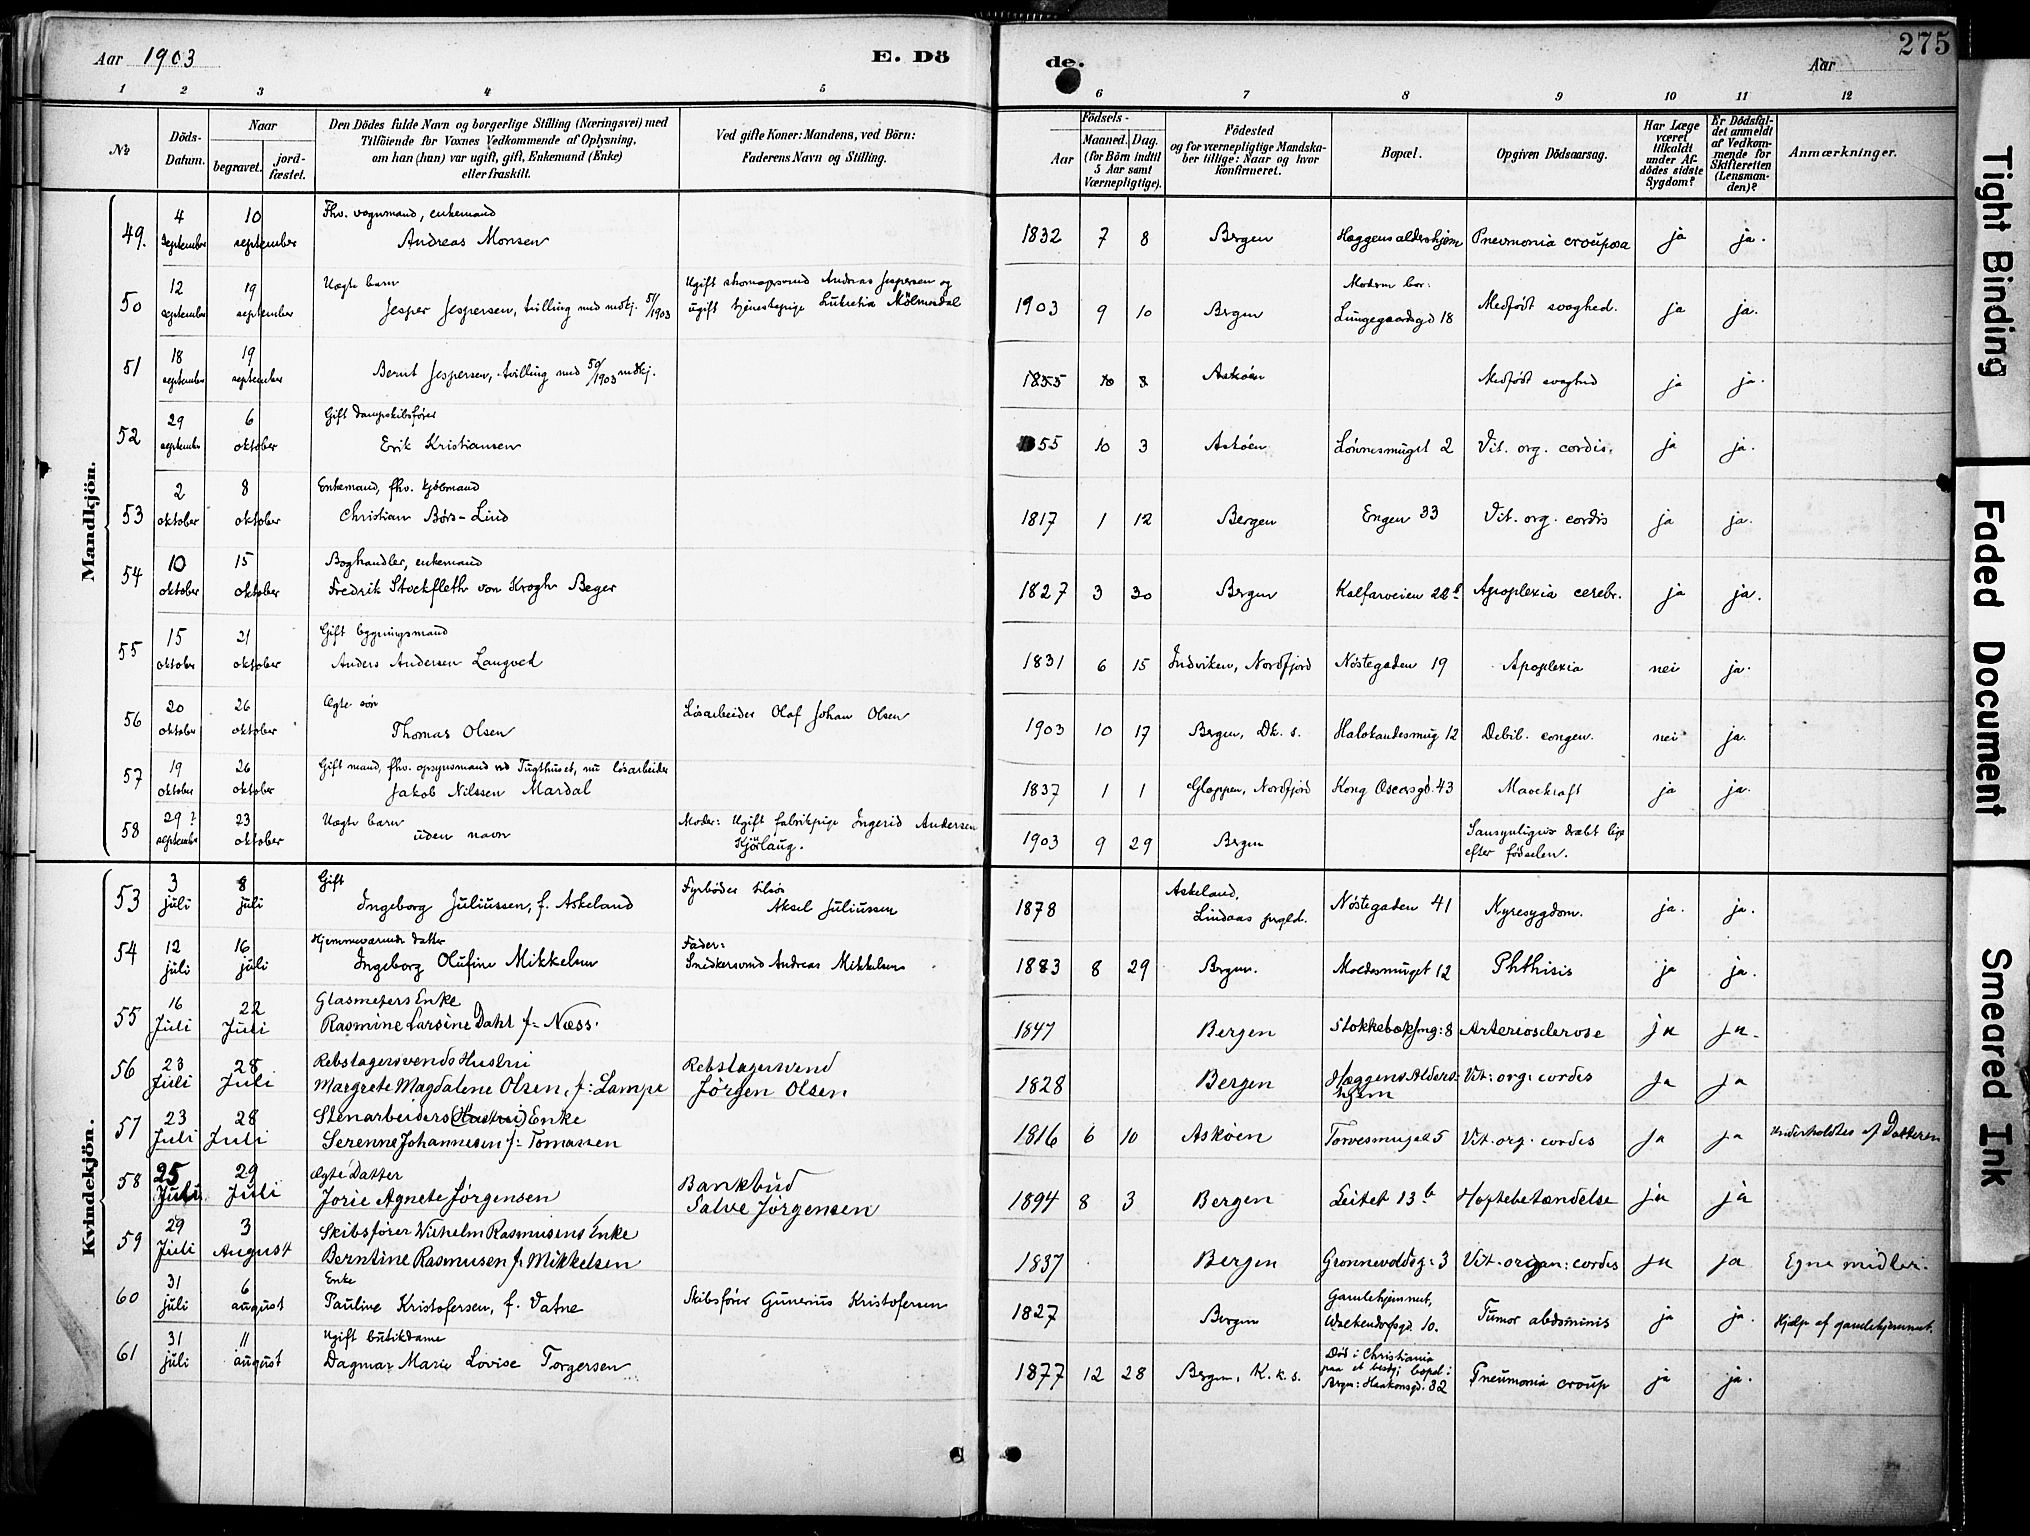 Aar 1903
E. Dö
de.
Aar
275
1 2 3 4 5 6 7 8 9 10 11 12
№
Döds-Datum.
Naar
begravet.
jord-fæstet.
Den Dödes fulde Navn og borgerlige Stilling (Næringsvei) med
Tilföiende for Voxnes Vedkommende af Oplysning,
om han (hun) var ugift, gift, Enkemand (Enke)
eller fraskilt.
Ved gifte Koner: Mandens, ved Börn:
Faderens Navn og Stilling.
Födsels-
Aar
Maaned. Dag.
(for Börn indtil
5 Aar samt
Værnepligtige).
Födested
og for værnepligtige Mandska-
ber tillige: Naar og hvor
konfirmeret.
Bopæl.
Opgiven Dödsaarsag.
Har Læge
været
tilkaldt
under Af-
dödes sidste
Sygdom?
Er Dödsfal-
det anmeldt
af Vedkom-
mende for
Skifteretten
(Lensman-
den)?
Anmærkninger.
Mandkjön.
49. 4 september 10 september Fhv. vognmand, enkemand
Andreas Monsen 1832 7 8 Bergen Haggens aldershjem Pneumonia crouposa ja ja.
50 12 september 19 september Uægte barn
Jesper Jespersen, tvilling med mdkj. 51/1903
Ugift skomagersvend Andreas Jespersen og
ugift tjenestepige Lukretia Mølmesdal
1903 9 10 Bergen Moderen bor:
Lungegaardsgd 18 Medfødt svaghed. ja ja.
51 18 september 19 september Bernt Jespersen, tvilling med 50/1903 mdkj. 1855 10 8 Askøen Medfødt svaghed ja ja.
52 29 september 6 oktober Gift dampskibsfører
Erik Kristiansen 55 10 3 Askøen Lønnesmuget 2 Vit. org. cordis. ja ja.
53 2 oktober 8 oktober Enkemand, fhv. kjøbmand
Christian Børs-Lind 1817 1 12 Bergen Engen 33 Vit. org. cordis ja ja.
54 10 oktober 15 oktober Boghandler, enkemand
Fredrik Stockfleth von Krogh Beyer 1827 3 30 Bergen Kalfarveien 22 Apoplexia cerebr. ja ja.
55 15 oktober 21 oktober Gift bygningsmand
Anders Andersen Langved 1831 6 15 Indviken, Nordfjord Nøstegaden 19 Apoplexia nei ja.
56 20 oktober 26 oktober Ægte søn
Thomas Olsen Løsarbeider Olaf Johan Olsen 1903 10 17 Bergen, Dk. s. Halvkandesmug 12 Debil. congen. nei ja.
57 19 oktober 26 oktober Gift mand, fhv. opsynsmand ved Tugthuset, nu løsarbeider
Jakob Nilssen Mardal 1837 1 1 Gloppen, Nordfjord Kong Oscarsgd. 43 Mavekræft ja ja.
58 29? september 23 oktober Uægte barn
uden navn Moder: Ugift fabrikpige Ingerid Andersen
Kjørlaug. 1903 9 29 Bergen Sansynligvis dræbt lige
efter fødselen.
Kvindekjön.
53 3 juli 8 juli Gift
Ingeborg Juliussen, f. Askeland Fyrbøder tilsøs
Aksel Juliussen 1878 Askeland,
Lindaas prgld. Nøstegaden 41 Nyresygdom. ja. ja.
54 12 juli 16 juli Hjemmeværende datter
Ingeborg Olufine Mikkelsen Fader:
Snedkersvend Andreas Mikkelsen 1883 8 29 Bergen. Moldesmuget 12 Phthisis ja ja.
55 16 Juli 22 Juli Glasmesters Enke
Rasmine Larsine Dahl f: Næss. 1847 Bergen Stokkeboksmg: 8 Arteriosclerose ja ja.
56 23 Juli 28 Juli Rebslagersvends Hustrui
Margrete Magdalene Olsen, f: Lampe Rebslagersvend
Jørgen Olsen 1828 Bergen Haggens Alders-
hjem Vit: org: cordis ja ja
57 23 Juli 28 Juli Stenarbeiders (Hustrui) Enke
Serenne Johannesen f: Tomassen 1816 6 10 Askøen Torvesmuget 5 Vit. org. cordis ja ja Underholdtes af Datteren
58 25 Juli 29 Juli Ægte Datter
Jorie Agnete Jørgensen Bankbud
Salve Jørgensen 1894 8 3 Bergen Leitet 13 b Hoftebetændelse ja ja
59 29 Juli 3 August Skibsfører Wilhelm Rasmusens Enke
Berntine Rasmusen f. Mikkelsen 1837 Bergen Grønnevoldsg: 3 Vit. organ: cordis ja ja Egne midler.
60 31 juli 6 august Enke
Pauline Kristofersen, f. Vatne Skibsfører Gunerius Kristofersen 1827 Bergen Gamlehjemmet,
Walkendorfsgd. 10. Tumor abdominis ja ja. Hjelp af gamlehjemmet.
61 31 juli 11 august Ugift butikdame
Dagmar Marie Lovise Torgersen 1877 12 28 Bergen, K. k. s. Død i Christiania
paa et besøg; bopæl i
Bergen: Haakonsgd. 32 Pneumonia croup ja ja.
Tight Binding
Faded Document
Smeared Ink